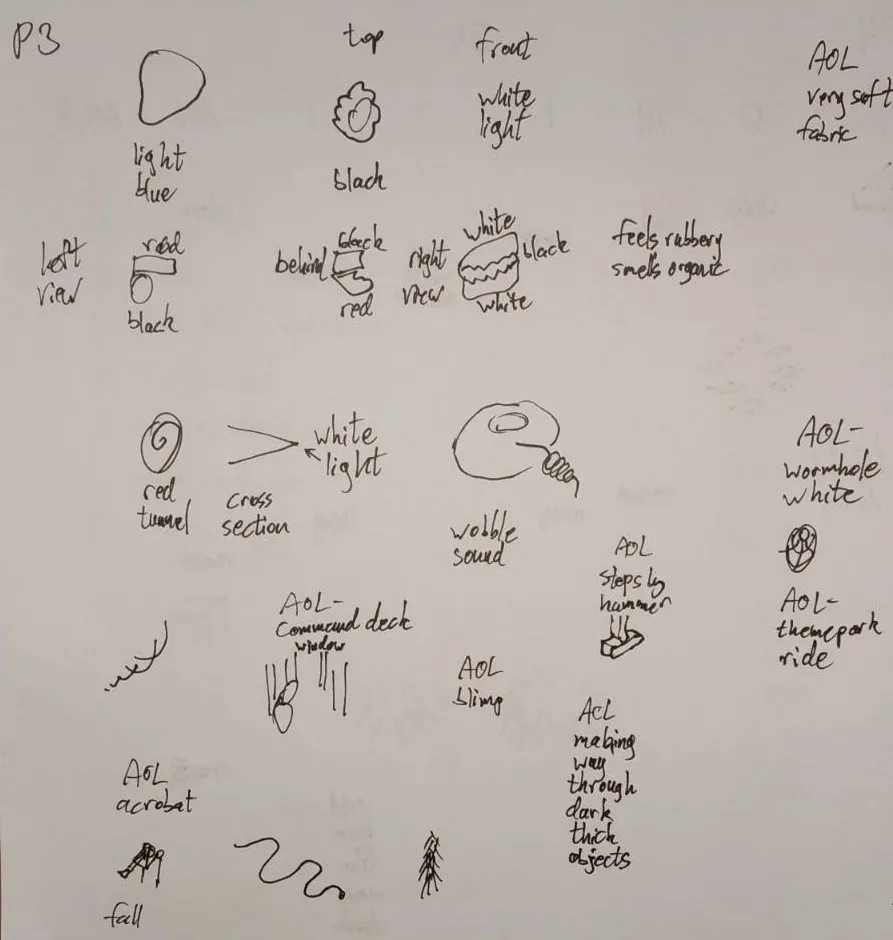 P3
top
front
AOL
very soft
fabric
white
light
light
blue
black
left
view
red
black
behind
black
red
right
view
white
black
white
feels rubbery
smells organic
red
tunnel
cross
section
white
light
wobble
sound
AOL-
wormhole
white
AOL
steps by
hammer
AOL-
themepark
ride
AOL-
command deck
window
AOL
blimp
AOL
making
way
through
dark
thick
objects
AOL
acrobat
fall